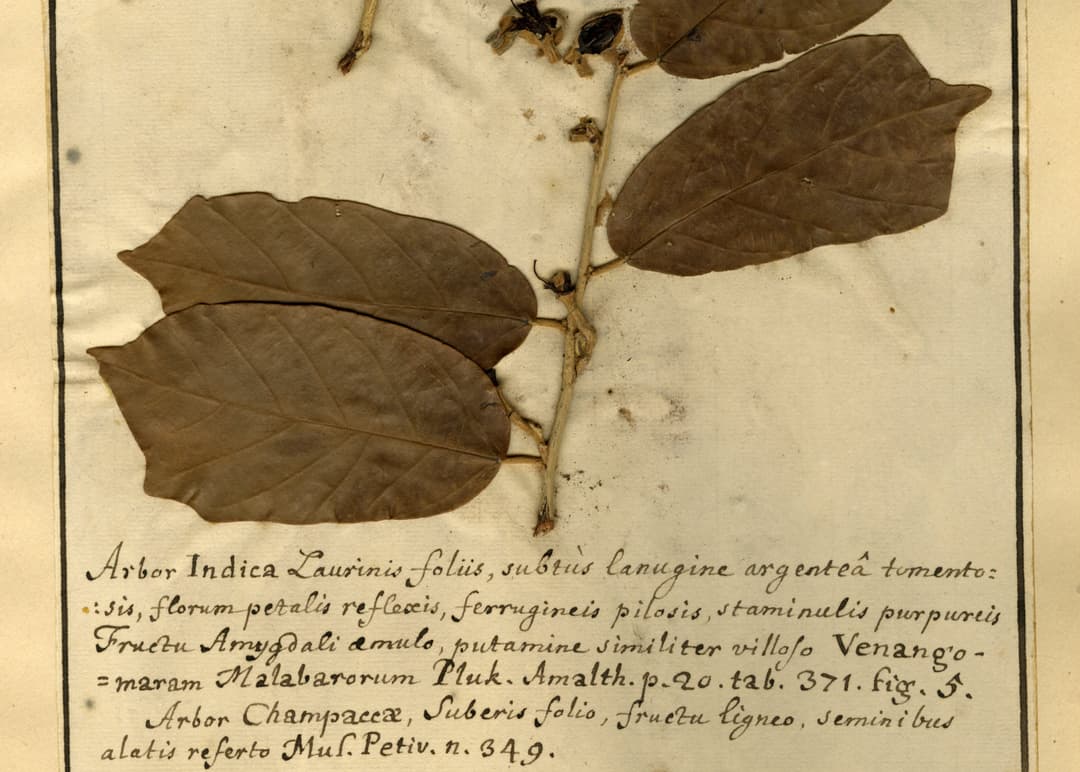 Arbor Indica Laurinis foliis, subtùs lanugine argenteâ tomento:
:sis, florum petalis reflexis, ferrugineis pilosis, staminulis purpureis
Fructu Amygdali æmulo, putamine similiter villoso Venango-
=maram Malabarorum Pluk. Amalth. p. 20. tab. 371. fig. 5.
Arbor Champaccæ, Suberis folio, fructu ligneo, seminibus
alatis referto Mus. Petiv. n. 349.